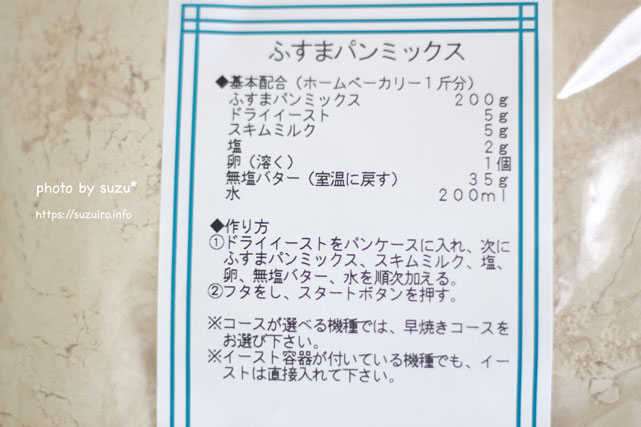 ふすまパンミックス
◆基本配合（ホームベーカリー１斤分）
ふすまパンミックス ２００ｇ
ドライイースト ５ｇ
スキムミルク ５ｇ
塩 ２ｇ
卵（溶く） １個
無塩バター（室温に戻す） ３５ｇ
水 ２００ｍｌ
◆作り方
①ドライイーストをパンケースに入れ、次に
ふすまパンミックス、スキムミルク、塩、
卵、無塩バター、水を順次加える。
②フタをし、スタートボタンを押す。
※コースが選べる機種では、早焼きコースを
お選び下さい。
※イースト容器が付いている機種でも、イー
ストは直接入れて下さい。
photo by suzu*
https://suzuiro.info